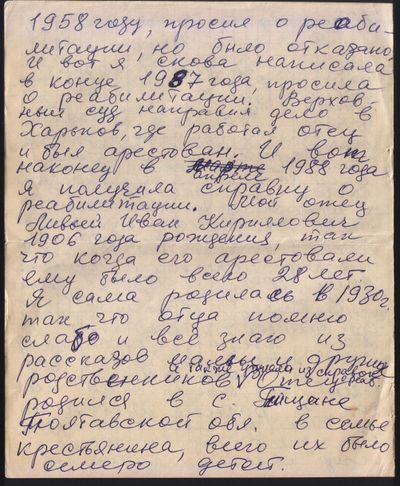 1958 году, просил о реаби-
литации, но было отказано.
И вот я снова написала
в конце 1987 года, просила
о реабилитации. Верхов
ный суд направил дело в
Харьков, где работал отец
и был арестован. И вот
наконец в апреле 1988 года
я получила справку о
реабилитации. Мой отец
Иван Кириллович
1906 года рождения, так
что когда его арестовали
ему было всего 28 лет.
Я сама родилась в 1930г.
так что отца помню
слабо и всё знаю из
рассказов мамы и других
а также узнала из справок
родственников. Отец
родился в с. Пищане
Полтавской обл. в семье
крестьянина, всего их было
семеро детей.